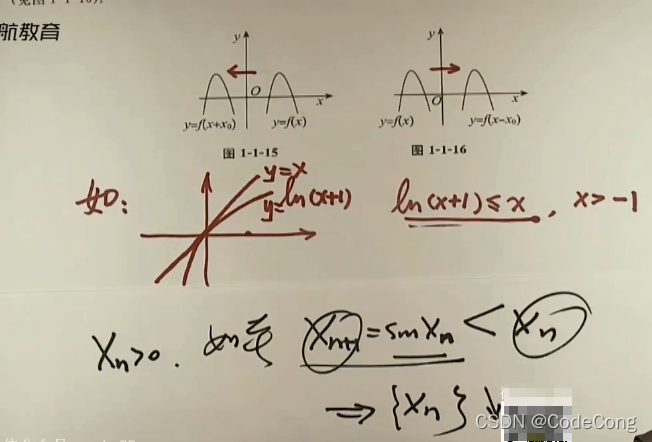 (见图1-1-16).
航教育
y
O
x
y=f(x+x₀) y=f(x)
图 1-1-15
y
O
x
y=f(x) y=f(x-x₀)
图 1-1-16
如:
y=x
y=ln(x+1)
ln(x+1)≤x, x>-1
Xn>0. 如若 Xn+1=sinXn<Xn
⇒{Xn}↓
CSDN @CodeCong